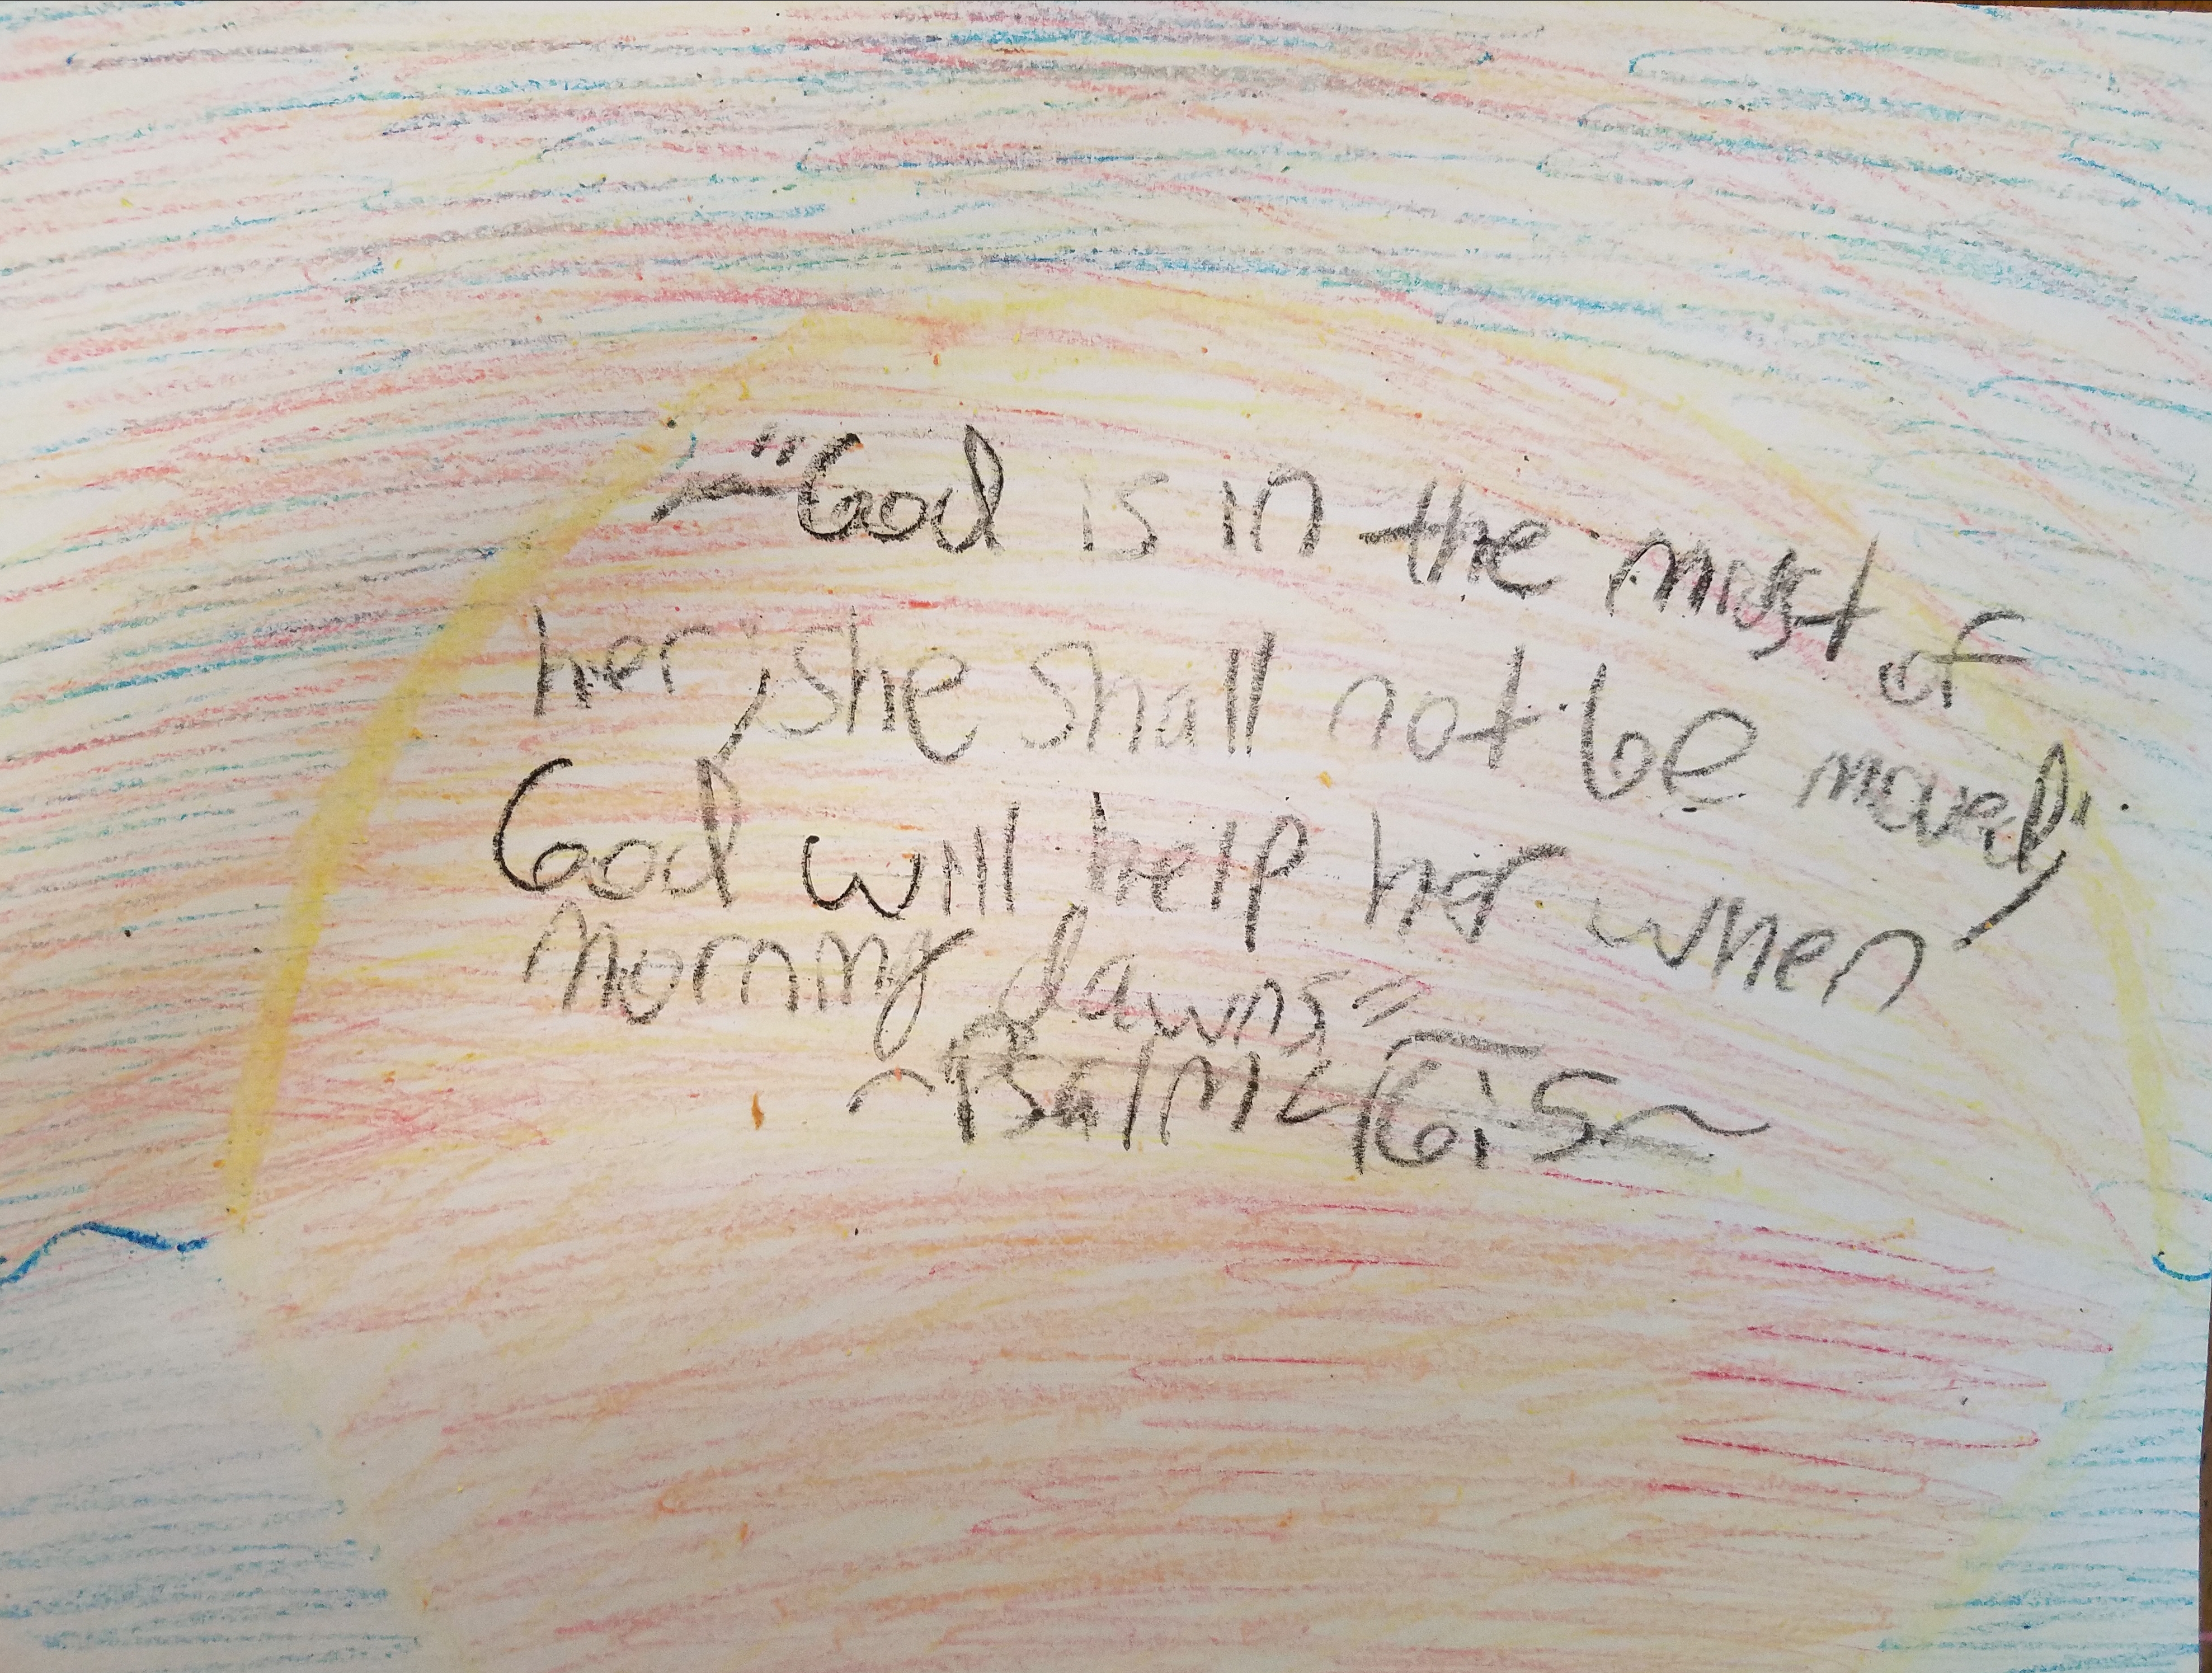 ~"God is in the midst of
her; she shall not be moved,"
God will help her when
morning dawns"~
~Psalm 46:5~